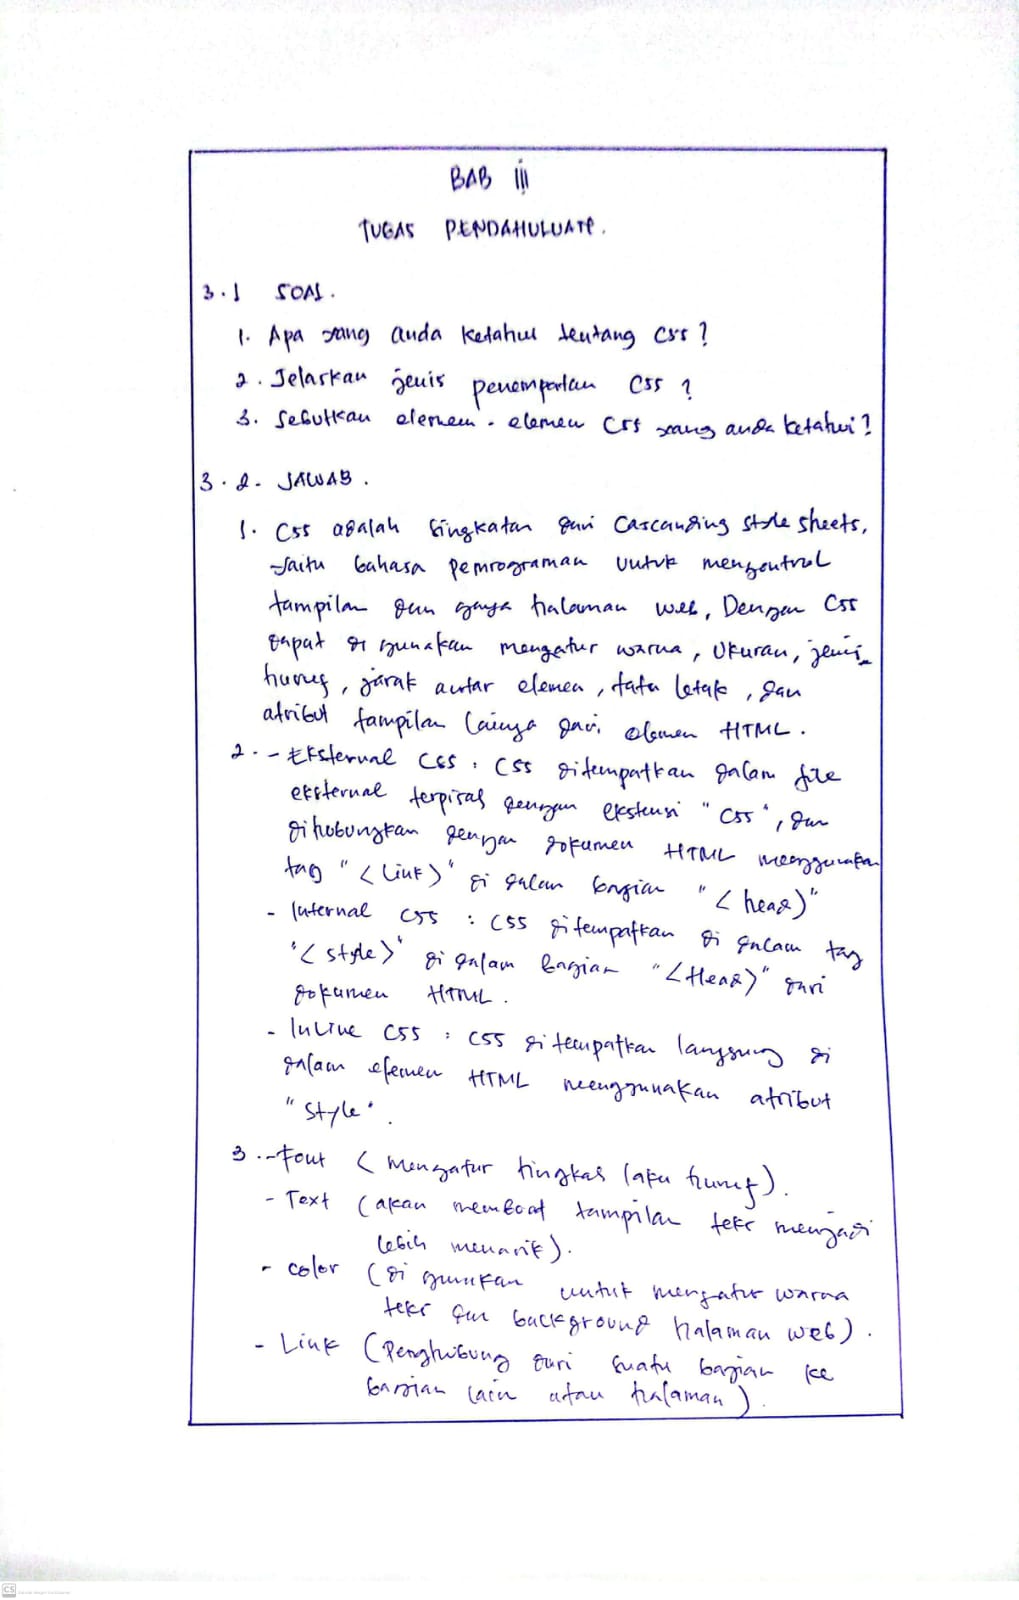 BAB III
TUGAS PENDAHULUAN.
3.1 SOAL.
1. Apa yang anda ketahui tentang CSS?
2. Jelaskan jenis penempatan CSS?
3. Sebutkan elemen-elemen CSS yang anda ketahui?
3.2. JAWAB.
1. CSS adalah singkatan dari Cascanding style sheets,
Yaitu bahasa pemrograman untuk mengontrol
tampilan dan gaya halaman web, Dengan CSS
dapat di gunakan mengatur warna, Ukuran, jenis
huruf, jarak antar elemen, tata letak, dan
atribut tampilan lainya dari elemen HTML.
2. - Eksternal CSS : CSS ditempatkan dalam file
eksternal terpisah dengan ekstensi "CSS", dan
dihubungkan dengan dokumen HTML menggunakan
tag "<link>" di dalam bagian "<head>"
- Internal CSS : CSS ditempatkan di dalam tag
"<style>" di dalam bagian "<Head>" dari
dokumen HTML.
- Inline CSS : CSS ditempatkan langsung di
dalam elemen HTML menggunakan atribut
"Style".
3. - Font (mengatur tingkas laku huruf).
- Text (akan membuat tampilan teks menjadi
lebih menarik).
- color (di gunakan untuk mengatur warna
teks dan background halaman web).
- Link (Penghubung dari suatu bagian ke
bagian lain atau halaman).
CS